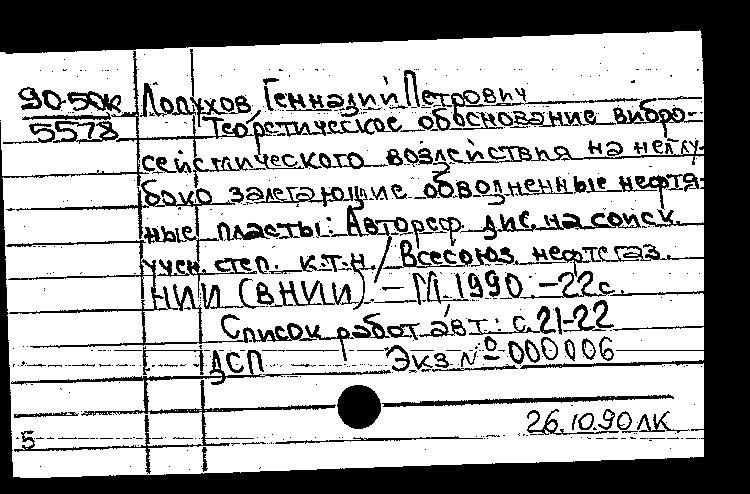 90-50к Лопухов, Геннадий Петрович
5578 Теоретическое обоснование вибро-
сейсмического воздействия на неглу-
боко залегающие обводненные нефтя-
ные пласты: Автореф. дис. на соиск.
учен. степ. к.т.н. / Всесоюз. нефтегаз.
НИИ (ВНИИ). – М. 1990. – 22 с.
Список работ авт.: с. 21-22
ДСП Экз № 000006
26.10.90 ЛК
5